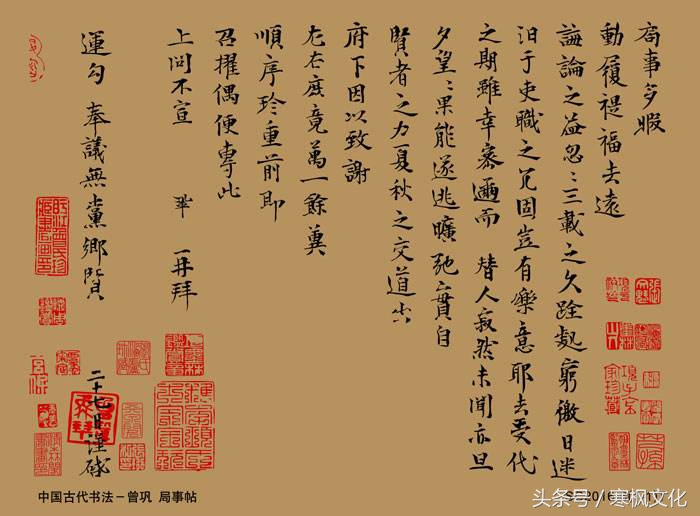 局事多暇
動履禔福去遠
誨論之益忽〻三載之久跧處窮徼日迷
汩于吏職之冗固豈有樂意耶去受代
之期雖幸密邇而 替人寂然未聞亦旦
夕望〻果能遂逃曠弛實自
賢者之力夏秋之交道出
府下因以致謝
左右庶竟萬一餘冀
順序珍重前即
召擢偶便專此
上問不宣 鞏 再拜
運勾 奉議無黨鄉賢 二十七日謹啓
中国古代书法－曾巩 局事帖
头条号/寒枫文化